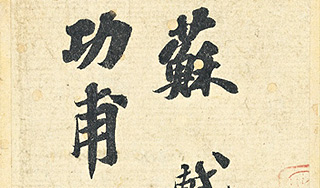 蘇軾
功甫